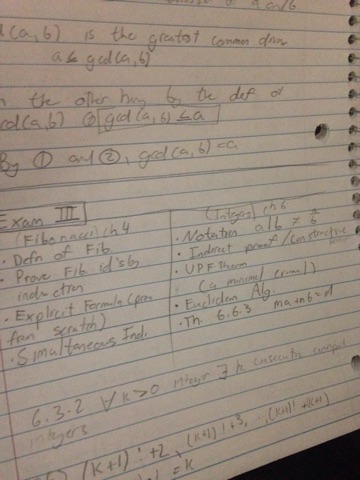 d(a,b) is the greatest common
a ≤ gcd(a,b)
the other hand by the def of
gcd(a,b) ② gcd(a,b) ≤ a
By ① and ②, gcd(a,b) = a
Exam III
(Fibonacci) ch 4
• Defn of Fib
• Prove Fib id's by
induction
• Explicit Formula (prove
from scratch)
• Simultaneous Ind.
(Integers) ch 6
• Notation a|b ≠ a/b
• Indirect proof / constructive
• UPF Thorm
(a minimal criminal)
• Euclidean Alg.
• Th. 6.6.3 ma+nb=d
6.3.2 ∀ k>0 integer ∃ k consecutive
integers
(k+1)!+2, (k+1)!+3, ..., (k+1)!+(k+1)
= k